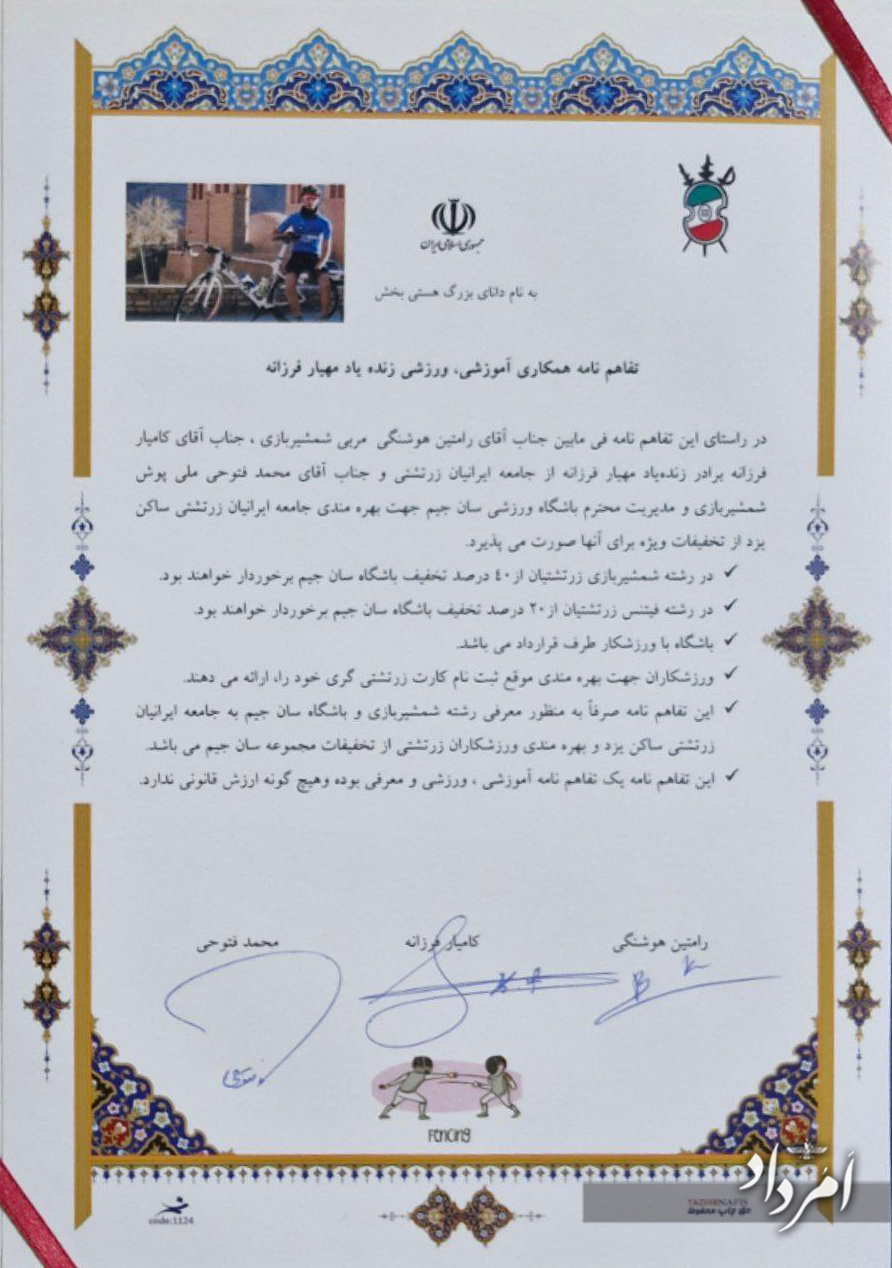 جمهوری اسلامی ایران
به نام دانای بزرگ هستی بخش
تفاهم نامه همکاری آموزشی، ورزشی زنده یاد مهیار فرزانه
در راستای این تفاهم نامه فی مابین جناب آقای رامتین هوشنگی مربی شمشیربازی ، جناب آقای کامیار
فرزانه برادر زنده‌یاد مهیار فرزانه از جامعه ایرانیان زرتشتی و جناب آقای محمد فتوحی ملی پوش
شمشیربازی و مدیریت محترم باشگاه ورزشی سان جیم جهت بهره مندی جامعه ایرانیان زرتشتی ساکن
یزد از تخفیفات ویژه برای آنها صورت می پذیرد.
✓ در رشته شمشیربازی زرتشتیان از ٤٠ درصد تخفیف باشگاه سان جیم برخوردار خواهند بود.
✓ در رشته فیتنس زرتشتیان از ٢٠ درصد تخفیف باشگاه سان جیم برخوردار خواهند بود.
✓ باشگاه با ورزشکار طرف قرارداد می باشد.
✓ ورزشکاران جهت بهره مندی موقع ثبت نام کارت زرتشتی گری خود را، ارائه می دهند.
✓ این تفاهم نامه صرفاً به منظور معرفی رشته شمشیربازی و باشگاه سان جیم به جامعه ایرانیان
زرتشتی ساکن یزد و بهره مندی ورزشکاران زرتشتی از تخفیفات مجموعه سان جیم می باشد.
✓ این تفاهم نامه یک تفاهم نامه آموزشی ، ورزشی و معرفی بوده وهیچ گونه ارزش قانونی ندارد.
رامتین هوشنگی کامیار فرزانه محمد فتوحی
Fencing
اَمُرداد
YAZHENAFIS
حق چاپ محفوظ
code:1124